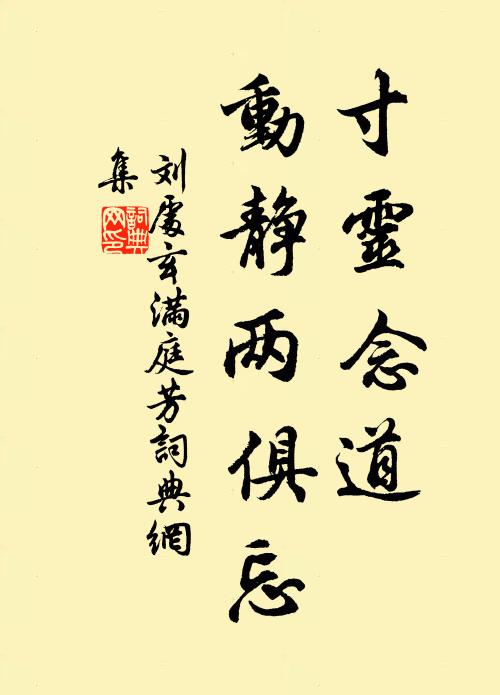 寸靈念道
動静两俱忘
刘處玄满庭芳詞典網
集
詞典网印